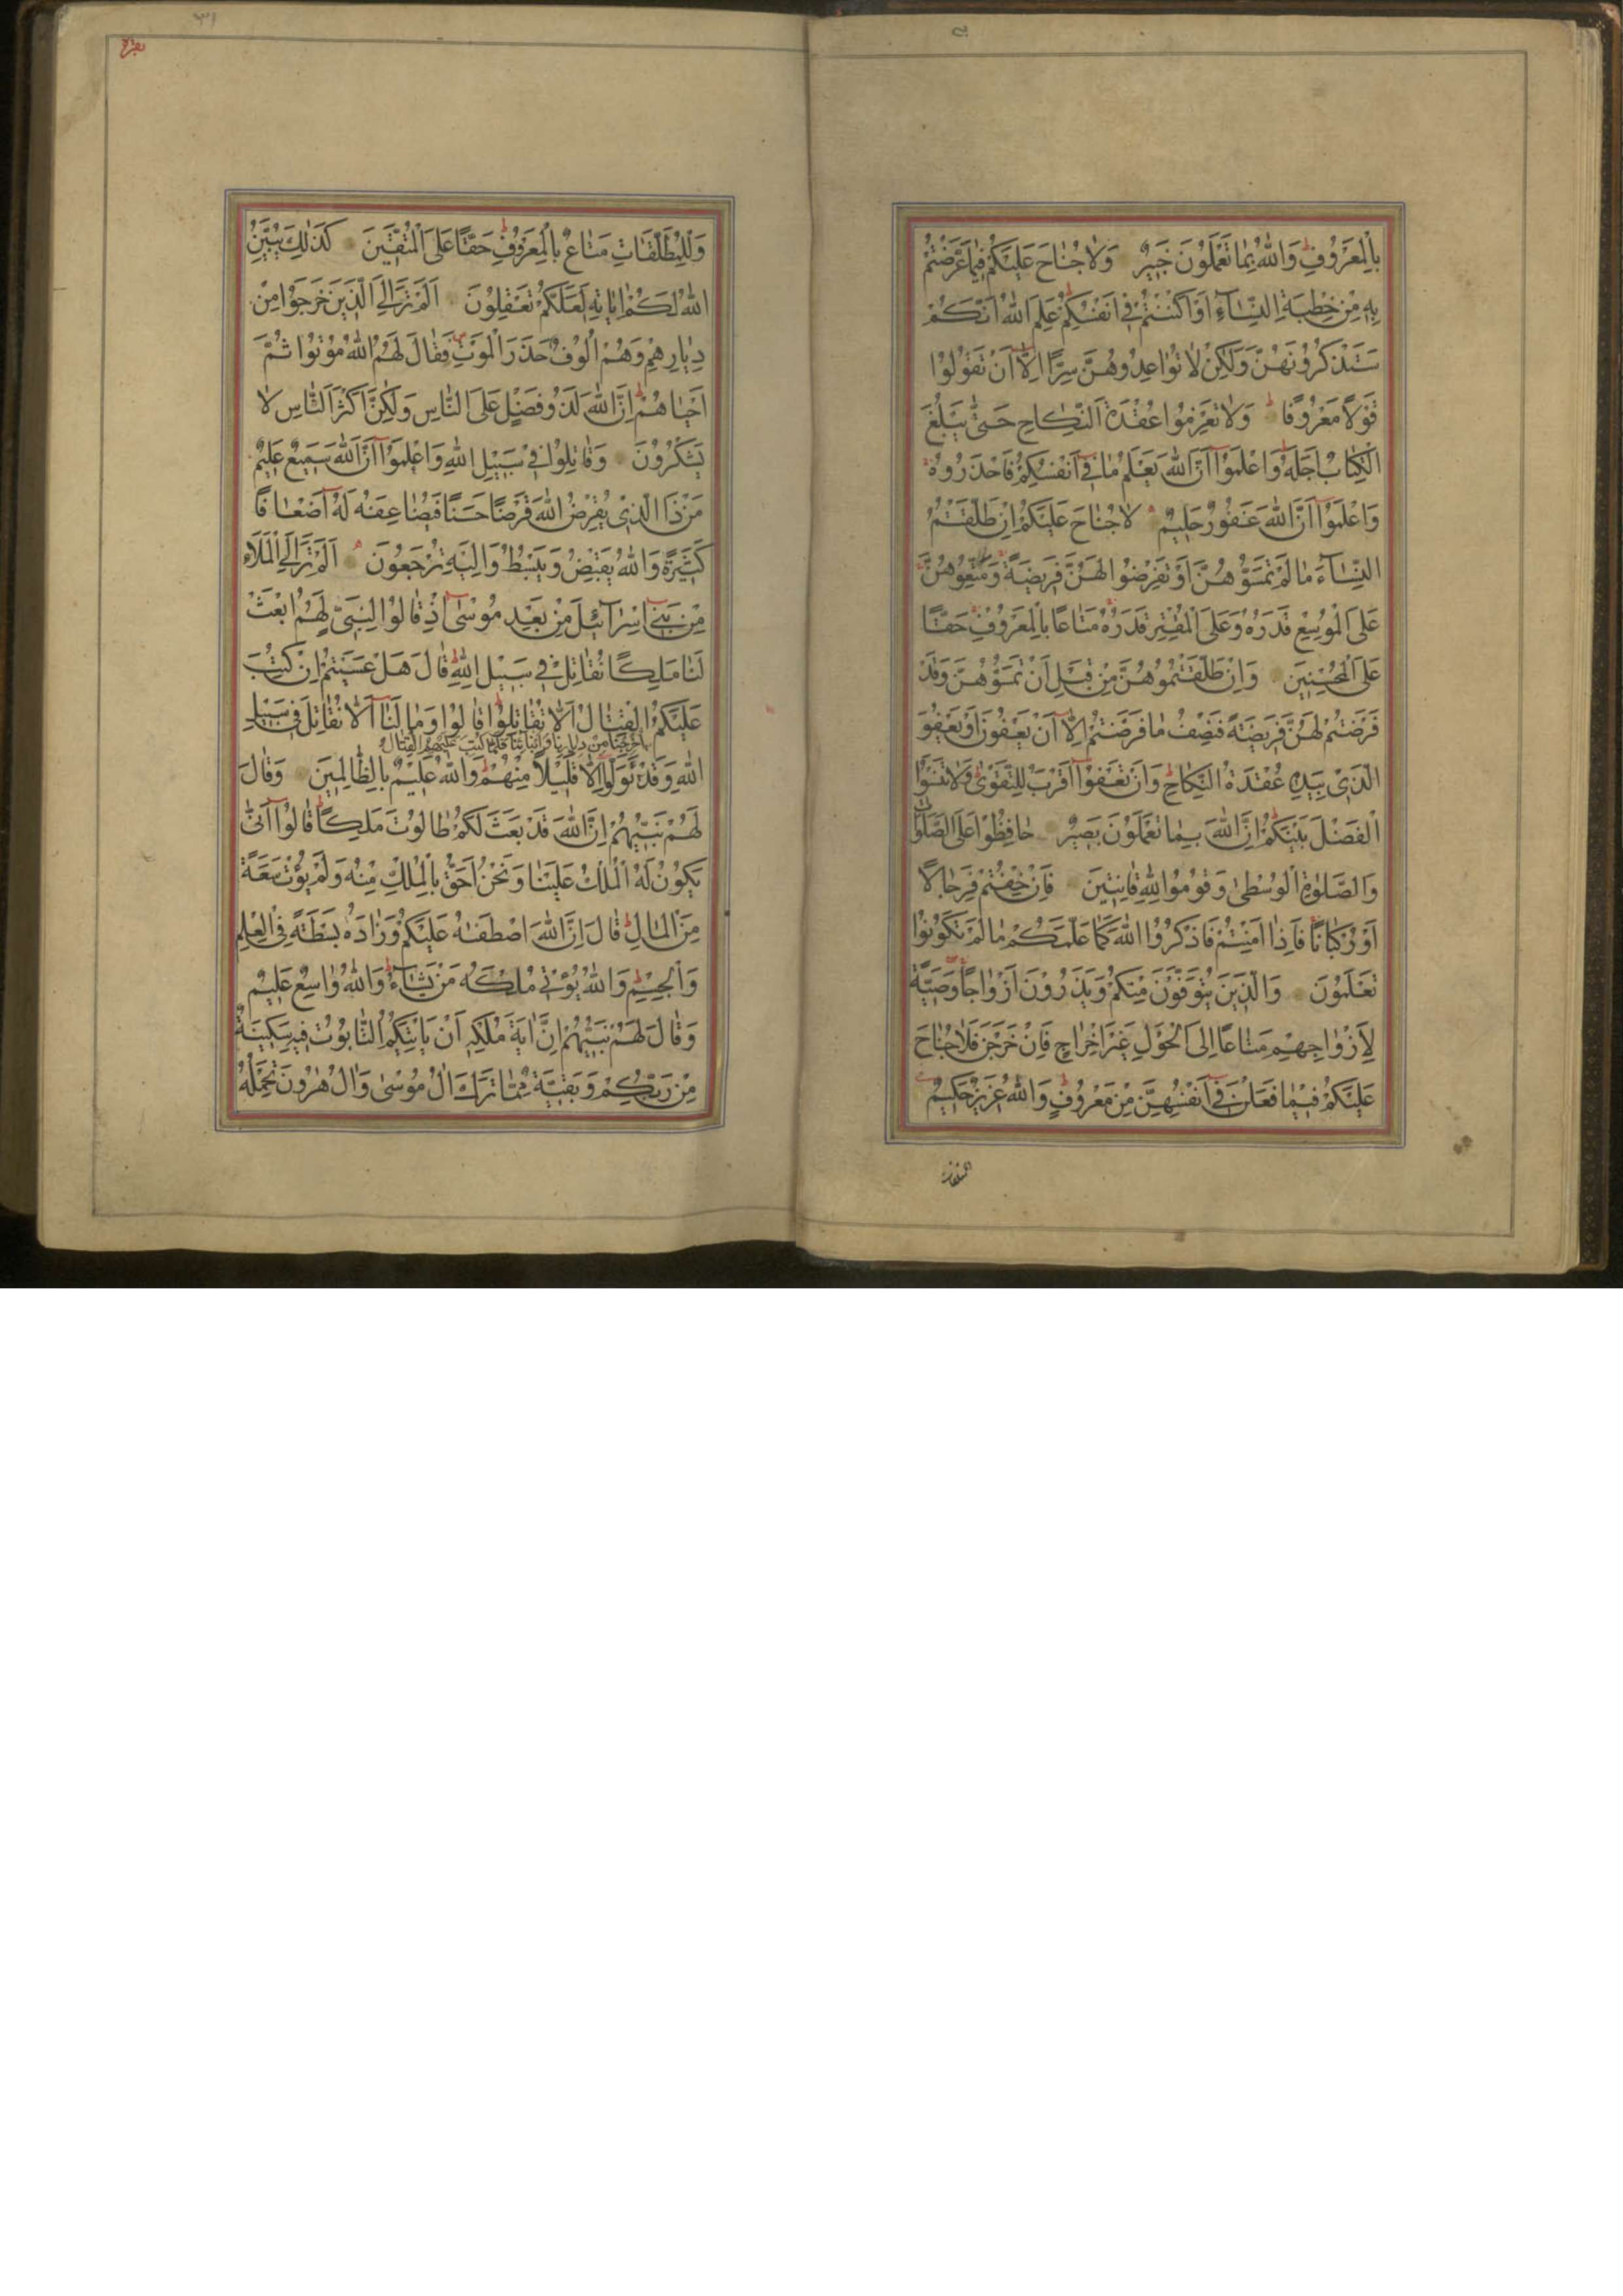 بِالْمَعْرُوفِ وَاللّٰهُ بِمَا تَعْمَلُونَ خَبِيرٌ وَلَا جُنَاحَ عَلَيْكُمْ فِيمَا عَرَّضْتُمْ
بِهِ مِنْ خِطْبَةِ النِّسَاءِ أَوْ أَكْنَنْتُمْ فِي أَنْفُسِكُمْ عَلِمَ اللّٰهُ أَنَّكُمْ
سَتَذْكُرُونَهُنَّ وَلٰكِنْ لَا تُوَاعِدُوهُنَّ سِرًّا إِلَّا أَنْ تَقُولُوا
قَوْلًا مَعْرُوفًا وَلَا تَعْزِمُوا عُقْدَةَ النِّكَاحِ حَتّٰى يَبْلُغَ
الْكِتَابُ أَجَلَهُ وَاعْلَمُوا أَنَّ اللّٰهَ يَعْلَمُ مَا فِي أَنْفُسِكُمْ فَاحْذَرُوهُ
وَاعْلَمُوا أَنَّ اللّٰهَ غَفُورٌ حَلِيمٌ لَا جُنَاحَ عَلَيْكُمْ إِنْ طَلَّقْتُمُ
النِّسَاءَ مَا لَمْ تَمَسُّوهُنَّ أَوْ تَفْرِضُوا لَهُنَّ فَرِيضَةً وَمَتِّعُوهُنَّ
عَلَى الْمُوسِعِ قَدَرُهُ وَعَلَى الْمُقْتِرِ قَدَرُهُ مَتَاعًا بِالْمَعْرُوفِ حَقًّا
عَلَى الْمُحْسِنِينَ وَإِنْ طَلَّقْتُمُوهُنَّ مِنْ قَبْلِ أَنْ تَمَسُّوهُنَّ وَقَدْ
فَرَضْتُمْ لَهُنَّ فَرِيضَةً فَنِصْفُ مَا فَرَضْتُمْ إِلَّا أَنْ يَعْفُونَ أَوْ يَعْفُوَ
الَّذِي بِيَدِهِ عُقْدَةُ النِّكَاحِ وَأَنْ تَعْفُوا أَقْرَبُ لِلتَّقْوٰى وَلَا تَنْسَوُا
الْفَضْلَ بَيْنَكُمْ إِنَّ اللّٰهَ بِمَا تَعْمَلُونَ بَصِيرٌ حَافِظُوا عَلَى الصَّلَوَاتِ
وَالصَّلٰوةِ الْوُسْطٰى وَقُومُوا لِلّٰهِ قَانِتِينَ فَإِنْ خِفْتُمْ فَرِجَالًا
أَوْ رُكْبَانًا فَإِذَا أَمِنْتُمْ فَاذْكُرُوا اللّٰهَ كَمَا عَلَّمَكُمْ مَا لَمْ تَكُونُوا
تَعْلَمُونَ وَالَّذِينَ يُتَوَفَّوْنَ مِنْكُمْ وَيَذَرُونَ أَزْوَاجًا وَصِيَّةً
لِأَزْوَاجِهِمْ مَتَاعًا إِلَى الْحَوْلِ غَيْرَ إِخْرَاجٍ فَإِنْ خَرَجْنَ فَلَا جُنَاحَ
عَلَيْكُمْ فِيمَا فَعَلْنَ فِي أَنْفُسِهِنَّ مِنْ مَعْرُوفٍ وَاللّٰهُ عَزِيزٌ حَكِيمٌ
٣١
بقره
وَلِلْمُطَلَّقَاتِ مَتَاعٌ بِالْمَعْرُوفِ حَقًّا عَلَى الْمُتَّقِينَ كَذٰلِكَ يُبَيِّنُ
اللّٰهُ لَكُمْ اٰيَاتِهِ لَعَلَّكُمْ تَعْقِلُونَ أَلَمْ تَرَ إِلَى الَّذِينَ خَرَجُوا مِنْ
دِيَارِهِمْ وَهُمْ أُلُوفٌ حَذَرَ الْمَوْتِ فَقَالَ لَهُمُ اللّٰهُ مُوتُوا ثُمَّ
أَحْيَاهُمْ إِنَّ اللّٰهَ لَذُو فَضْلٍ عَلَى النَّاسِ وَلٰكِنَّ أَكْثَرَ النَّاسِ لَا
يَشْكُرُونَ وَقَاتِلُوا فِي سَبِيلِ اللّٰهِ وَاعْلَمُوا أَنَّ اللّٰهَ سَمِيعٌ عَلِيمٌ
مَنْ ذَا الَّذِي يُقْرِضُ اللّٰهَ قَرْضًا حَسَنًا فَيُضَاعِفَهُ لَهُ أَضْعَافًا
كَثِيرَةً وَاللّٰهُ يَقْبِضُ وَيَبْسُطُ وَإِلَيْهِ تُرْجَعُونَ أَلَمْ تَرَ إِلَى الْمَلَاءِ
مِنْ بَنِي إِسْرَائِيلَ مِنْ بَعْدِ مُوسٰى إِذْ قَالُوا لِنَبِيٍّ لَهُمُ ابْعَثْ
لَنَا مَلِكًا نُقَاتِلْ فِي سَبِيلِ اللّٰهِ قَالَ هَلْ عَسَيْتُمْ إِنْ كُتِبَ
عَلَيْكُمُ الْقِتَالُ أَلَّا تُقَاتِلُوا قَالُوا وَمَا لَنَا أَلَّا نُقَاتِلَ فِي سَبِيلِ
أُخْرِجْنَا مِنْ دِيَارِنَا وَأَبْنَائِنَا فَلَمَّا كُتِبَ عَلَيْهِمُ الْقِتَالُ
اللّٰهِ وَقَدْ تَوَلَّوْا إِلَّا قَلِيلًا مِنْهُمْ وَاللّٰهُ عَلِيمٌ بِالظَّالِمِينَ وَقَالَ
لَهُمْ نَبِيُّهُمْ إِنَّ اللّٰهَ قَدْ بَعَثَ لَكُمْ طَالُوتَ مَلِكًا قَالُوا أَنّٰى
يَكُونُ لَهُ الْمُلْكُ عَلَيْنَا وَنَحْنُ أَحَقُّ بِالْمُلْكِ مِنْهُ وَلَمْ يُؤْتَ سَعَةً
مِنَ الْمَالِ قَالَ إِنَّ اللّٰهَ اصْطَفٰهُ عَلَيْكُمْ وَزَادَهُ بَسْطَةً فِي الْعِلْمِ
وَالْجِسْمِ وَاللّٰهُ يُؤْتِي مُلْكَهُ مَنْ يَشَاءُ وَاللّٰهُ وَاسِعٌ عَلِيمٌ
وَقَالَ لَهُمْ نَبِيُّهُمْ إِنَّ اٰيَةَ مُلْكِهِ أَنْ يَأْتِيَكُمُ التَّابُوتُ فِيهِ سَكِينَةٌ
مِنْ رَبِّكُمْ وَبَقِيَّةٌ مِمَّا تَرَكَ اٰلُ مُوسٰى وَاٰلُ هٰرُونَ تَحْمِلُهُ